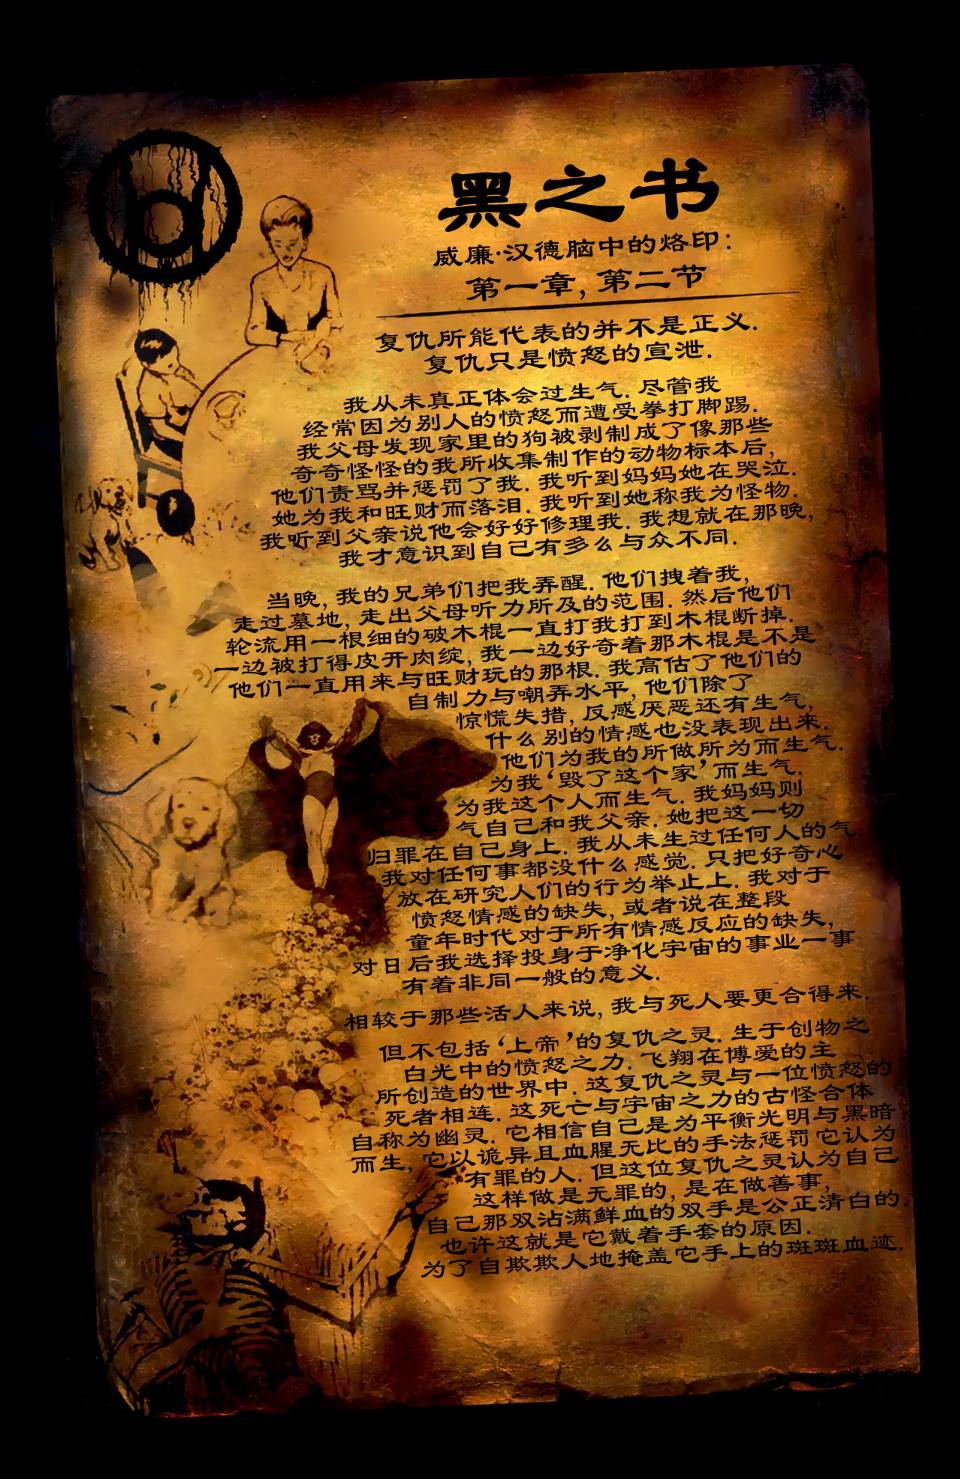 黑之书
威廉·汉德脑中的烙印:
第一章, 第二节
复仇所能代表的并不是正义.
复仇只是愤怒的宣泄.
我从未真正体会过生气. 尽管我
经常因为别人的愤怒而遭受拳打脚踢.
我父母发现家里的狗被剥制成了像那些
奇奇怪怪的我所收集制作的动物标本后,
他们责骂并惩罚了我. 我听到妈妈她在哭泣.
她为我和旺财而落泪. 我听到她称我为怪物.
我听到父亲说他会好好修理我. 我想就在那晚,
我才意识到自己有多么与众不同.
当晚, 我的兄弟们把我弄醒. 他们拽着我,
走过墓地, 走出父母听力所及的范围. 然后他们
轮流用一根细的破木棍一直打我打到木棍断掉.
一边被打得皮开肉绽, 我一边好奇着那木棍是不是
他们一直用来与旺财玩的那根. 我高估了他们的
自制力与嘲弄水平, 他们除了
惊慌失措, 反感厌恶还有生气,
什么别的情感也没表现出来.
他们为我的所做所为而生气.
为我‘毁了这个家’而生气.
为我这个人而生气. 我妈妈则
气自己和我父亲. 她把这一切
归罪在自己身上. 我从未生过任何人的气.
我对任何事都没什么感觉. 只把好奇心
放在研究人们的行为举止上. 我对于
愤怒情感的缺失, 或者说在整段
童年时代对于所有情感反应的缺失,
对日后我选择投身于净化宇宙的事业一事
有着非同一般的意义.
相较于那些活人来说, 我与死人要更合得来.
但不包括‘上帝’的复仇之灵. 生于创物之
白光中的愤怒之力. 飞翔在博爱的主
所创造的世界中. 这复仇之灵与一位愤怒的
死者相连. 这死亡与宇宙之力的古怪合体
自称为幽灵. 它相信自己是为平衡光明与黑暗
而生, 它以诡异且血腥无比的手法惩罚它认为
有罪的人. 但这位复仇之灵认为自己
这样做是无罪的, 是在做善事,
自己那双沾满鲜血的双手是公正清白的.
也许这就是它戴着手套的原因.
为了自欺欺人地掩盖它手上的斑斑血迹.